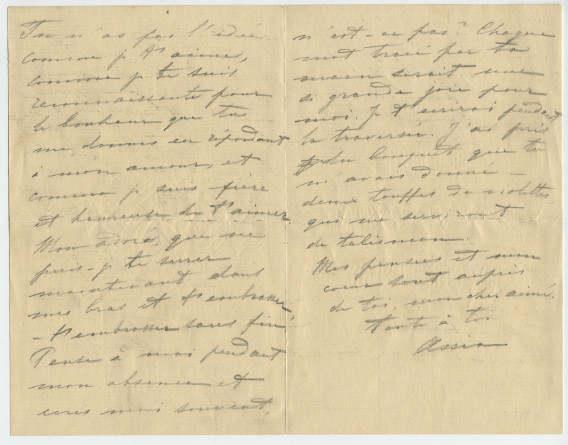 Tu n'as pas l'idée
comme je t'aime,
comme je te suis
reconnaissante pour
le bonheur que tu
me donnes en répondant
à mon amour, et
comme je suis fière
et heureuse de t'aimer.
Mon adoré, que ne
puis-je te serrer
maintenant dans
mes bras et t'embrasser,
- t'embrasser sans fin.
Pense à moi pendant
mon absence et
écris moi souvent,
n'est-ce pas? Chaque
mot tracé par ta
main serait une
si grande joie pour
moi. Je t'écrirai pendant
la traversée. J'ai pris
du bouquet que tu
m'avais donné -
deux touffes de violettes
qui me serviront
de talisman.
Mes pensées et mon
cœur sont auprès
de toi, mon cher aimé.
Toute à toi
Assia